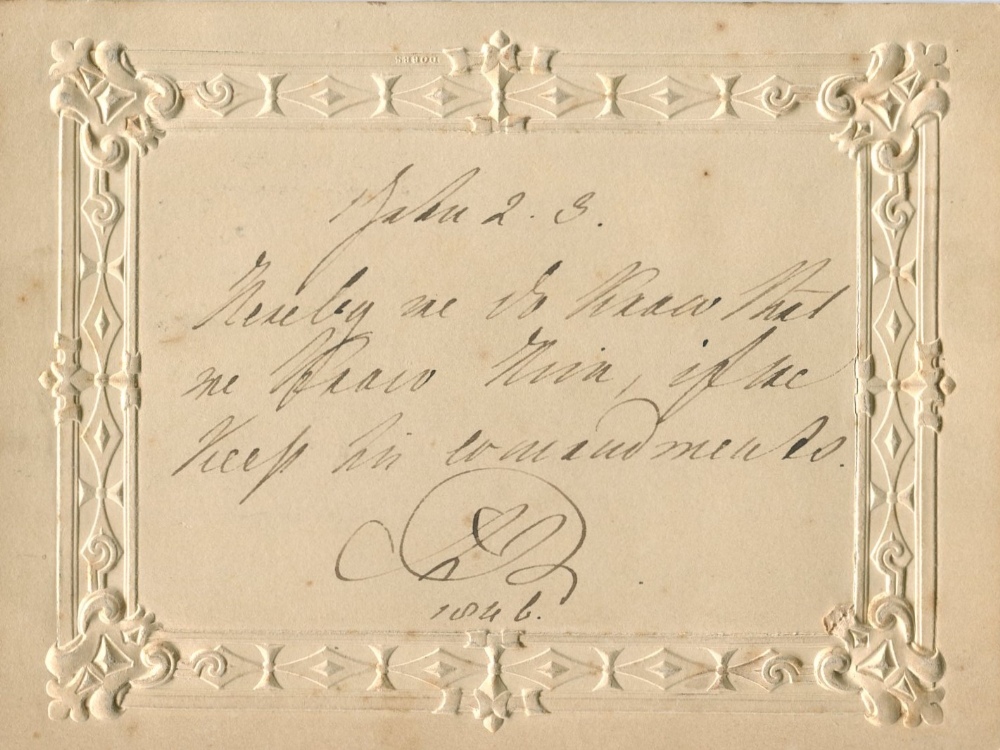 1 John 2. 3.
Hereby we do know that
we know Him, if we
keep his comandments.
1846.